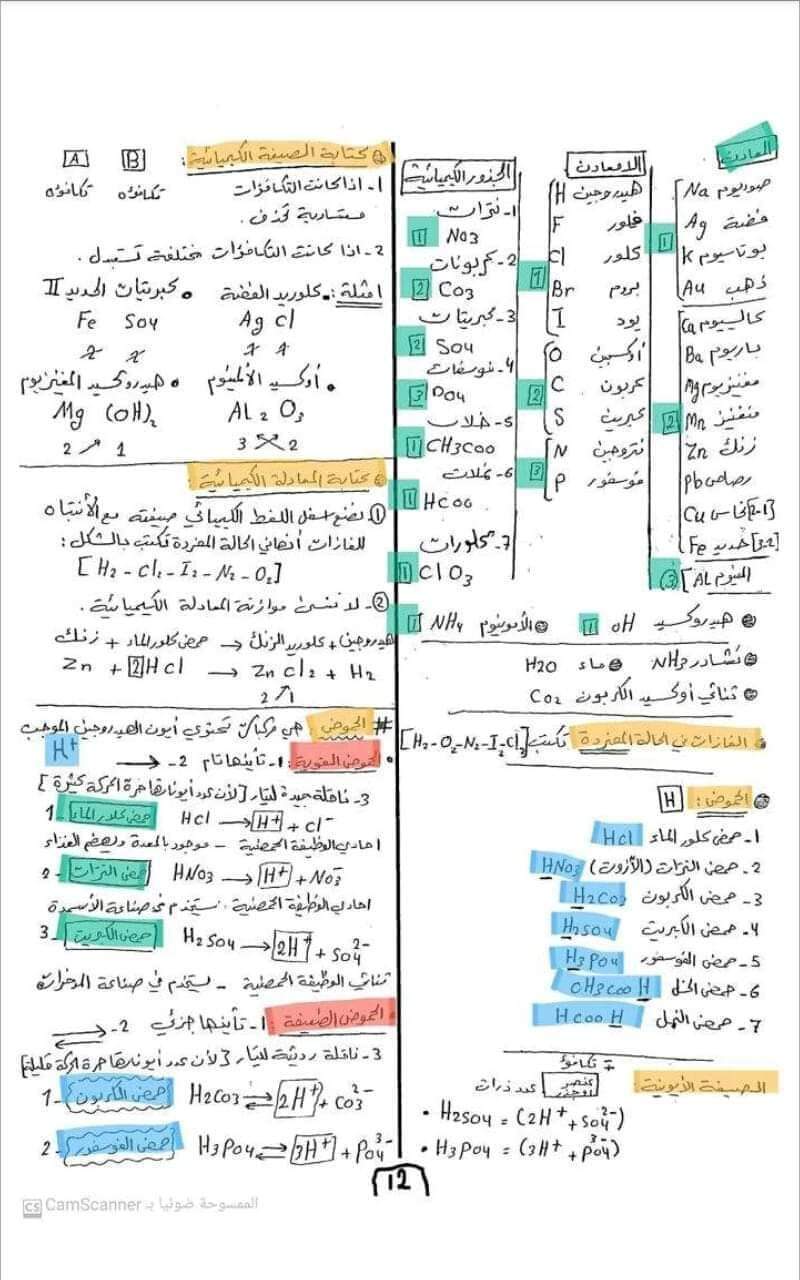 المعادن
صوديوم Na
فضة Ag
بوتاسيوم K
ذهب Au
1
كالسيوم Ca
باريوم Ba
مغنيزيوم Mg
منغنيز Mn
زنك Zn
رصاص Pb
نحاس Cu [2-1]
حديد Fe [3-2]
2
المنيوم AL
3
اللامعادن
هيدروجين H
فلور F
كلور Cl
بروم Br
يود I
1
أكسجين O
كربون C
كبريت S
2
نتروجين N
فوسفور P
3
الجذور الكيميائية
1- نترات
1 NO3
2- كربونات
2 CO3
3- كبريتات
2 SO4
4- فوسفات
3 PO4
5- خلات
1 CH3COO
6- نملات
1 HCOO
7- كلورات
1 ClO3
هيدروكسيد OH 1
الأمونيوم NH4 1
نشادر NH3 ماء H2O
ثنائي أوكسيد الكربون CO2
الغازات في الحالة المنفردة تكتب [H2-O2-N2-I2-Cl2]
الحموض: H
1- حمض كلور الماء HCl
2- حمض النترات (الآزوت) HNO3
3- حمض الكربون H2CO3
4- حمض الكبريت H2SO4
5- حمض الفوسفور H3PO4
6- حمض الخل CH3COOH
7- حمض النمل HCOOH
الصيغة الأيونية:
∓ تكافؤ
عنصر أو جذر
عدد ذرات
• H2SO4 = (2H+ + SO4 2-)
• H3PO4 = (3H+ + PO4 3-)
كتابة الصيغة الكيميائية:
A B
تكافؤه تكافؤه
1- اذا كانت التكافؤات
متساوية تحذف.
2- اذا كانت التكافؤات مختلفة تستبدل.
امثلة: • كلوريد الفضة • كبريتات الحديد II
Ag Cl
1 1
Fe SO4
2 2
• أوكسيد الألمنيوم • هيدروكسيد المغنيزيوم
AL2 O3
3 2
Mg (OH)2
2 1
كتابة المعادلة الكيميائية:
1 نضع اسفل اللفظ الكيميائي صيغته مع الأنتباه
للغازات أنها في الحالة المنفردة تكتب بالشكل:
[H2-Cl2-I2-N2-O2]
2- لا ننسى موازنة المعادلة الكيميائية.
هيدروجين + كلوريد الزنك ← حمض كلور الماء + زنك
Zn + 2HCl → ZnCl2 + H2
2 1
# الحموض: هي مركبات تحتوي أيون الهيدروجين الموجب
H+
• الحموض القوية: 1- تأينها تام 2- →
3- ناقلة جيدة للتيار [لأن عدد أيوناتها حرة الحركة كثيرة]
1- حمض كلور الماء HCl → H+ + Cl-
احادي الوظيفة الحمضية - موجود بالمعدة ولهضم الغذاء
2- حمض النترات HNO3 → H+ + NO3-
احادي الوظيفة الحمضية. نستخدم في صناعة الأسمدة
3- حمض الكبريت H2SO4 → 2H+ + SO4 2-
ثنائي الوظيفة الحمضية - يستخدم في صناعة المدخرات
• الحموض الضعيفة: 1- تأينها جزئي 2- ⇌
3- ناقلة رديئة للتيار [لأن عدد أيوناتها حرة الحركة قليلة]
1- حمض الكربون H2CO3 ⇌ 2H+ + CO3 2-
2- حمض الفوسفور H3PO4 ⇌ 3H+ + PO4 3-
12
CS CamScanner الممسوحة ضوئيا بـ